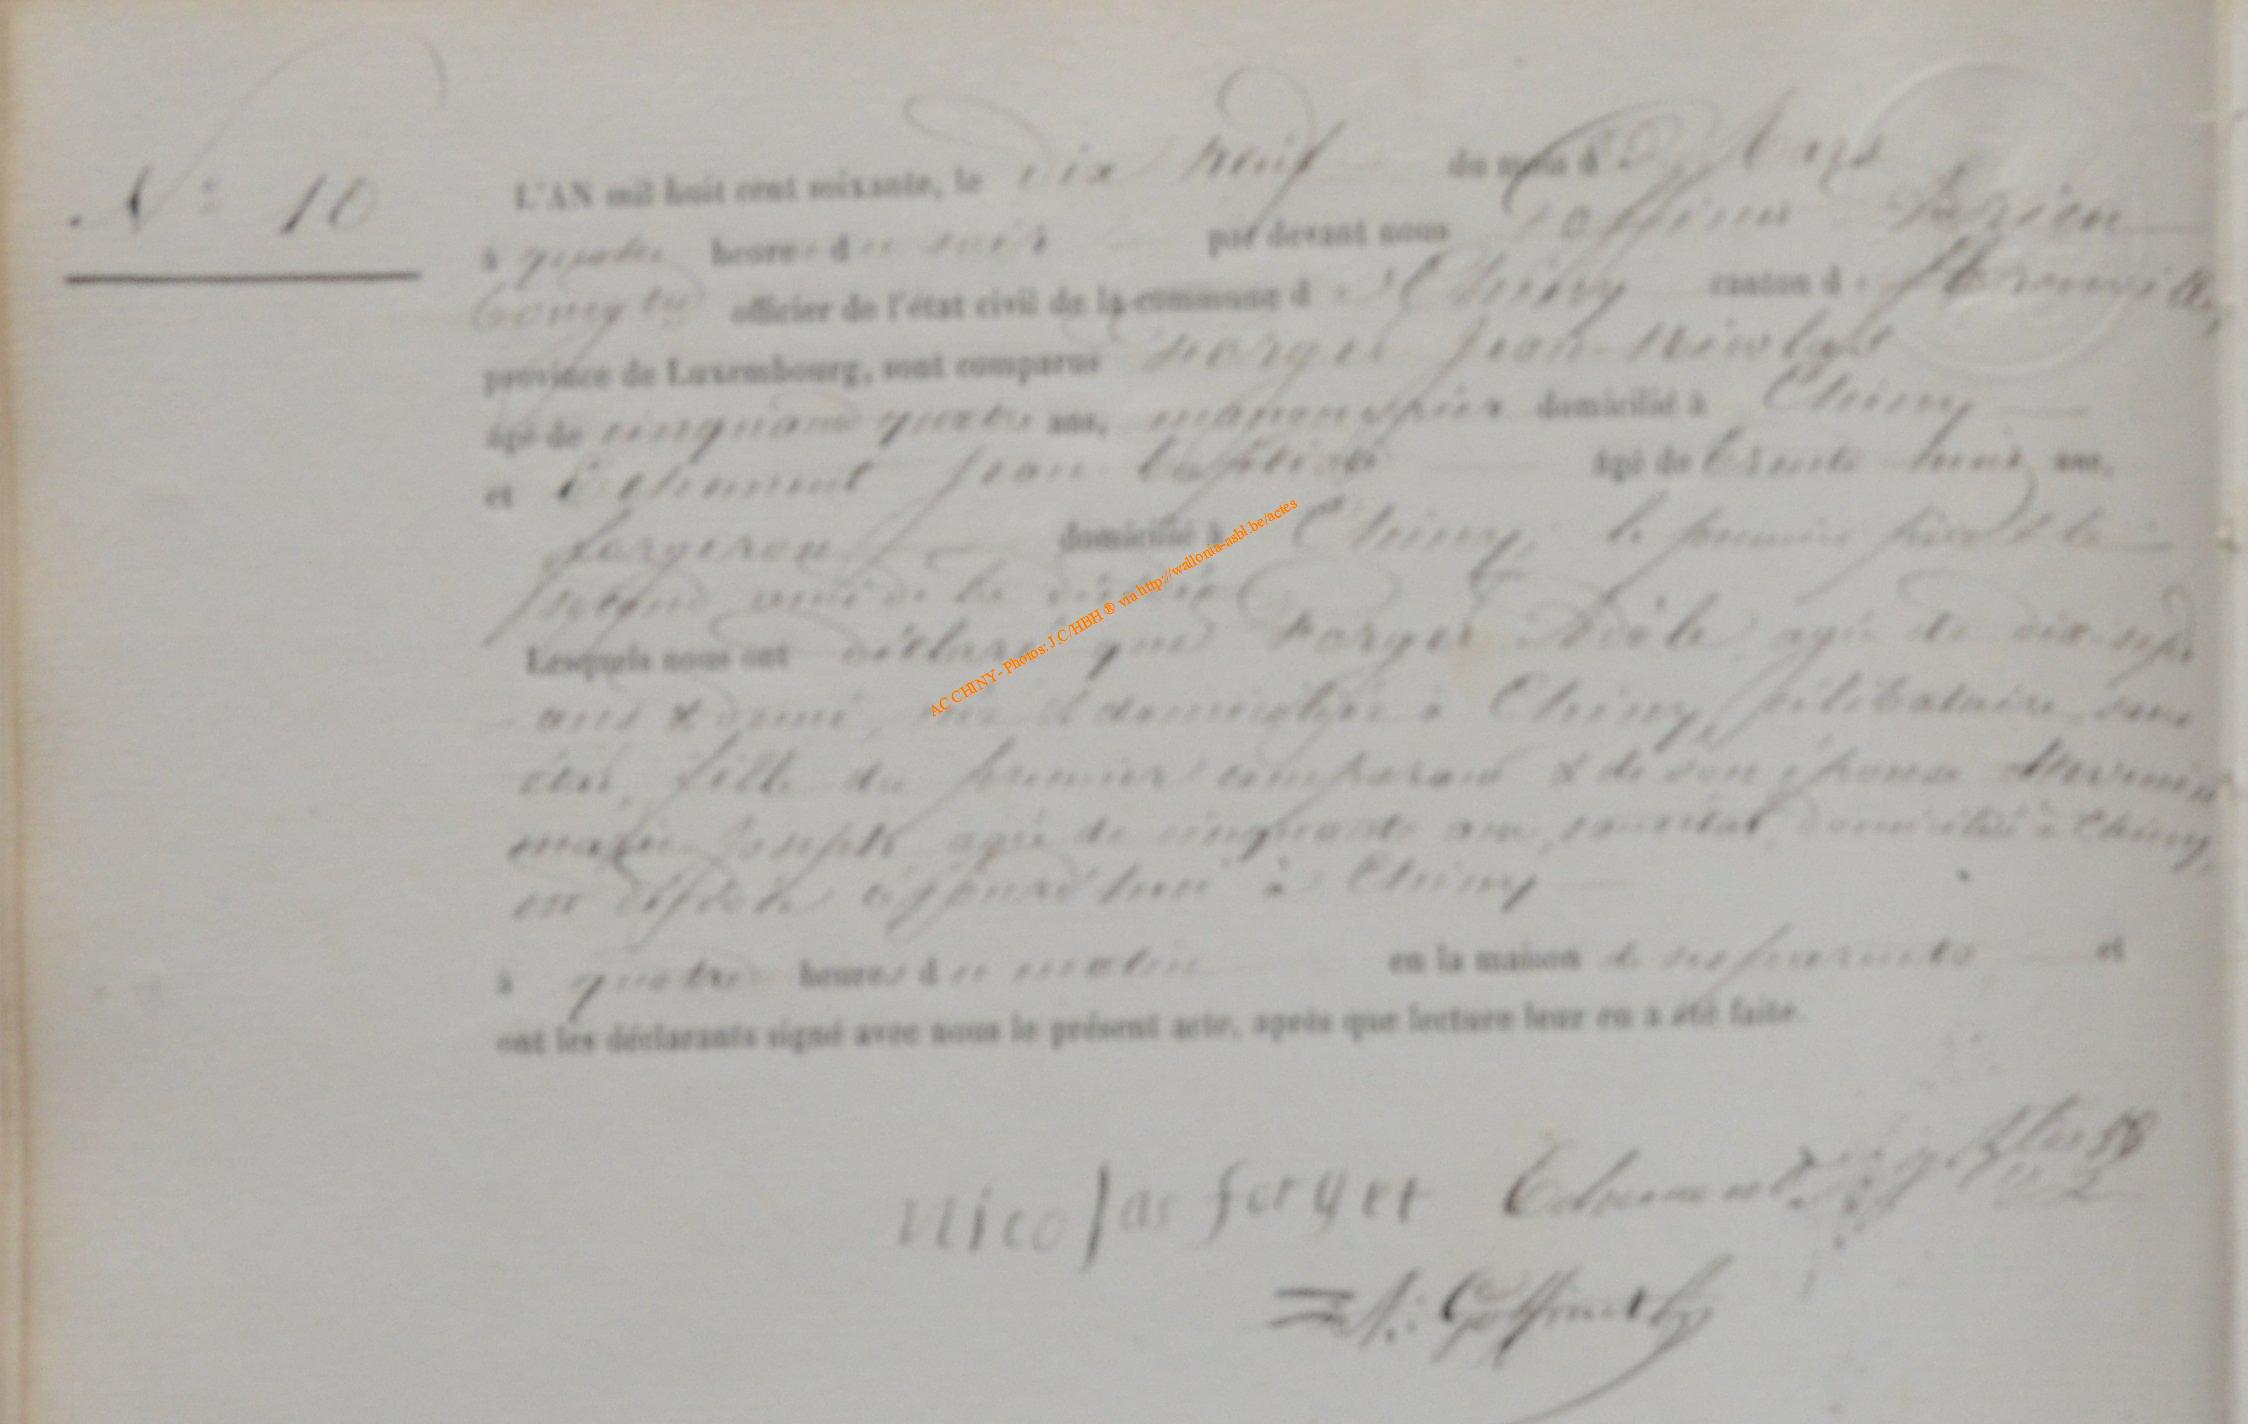 N° 10
L'AN mil huit cent soixante, le dix neuf du mois de Mars
à quatre heures du soir par devant nous Goffinet
officier de l'état civil de la commune de Chiny canton de
province de Luxembourg, sont comparus Forget Jean Nicolas
âgé de cinquante quatre ans, domicilié à Chiny
et Echement Jean Baptiste âgé de trente ans,
forgeron domicilié à Chiny, le premier père & le
second ami de la
Lesquels nous ont déclaré que Forget Adèle, agée de dix-sept
ans & demi, née & domiciliée à Chiny, célibataire, sans
état, fille du premier comparant & de son épouse
marie Joseph agée de cinquante ans, sans état, domiciliée à Chiny,
est décédée aujourd'hui à Chiny
à quatre heures du matin en la maison de ses parents et
ont les déclarants signé avec nous le présent acte, après que lecture leur en a été faite.
nicolas forget Echement
Goffinet
AC CHINY - Photos: J.C/HBH ® via http://wallonia-asbl.be/actes